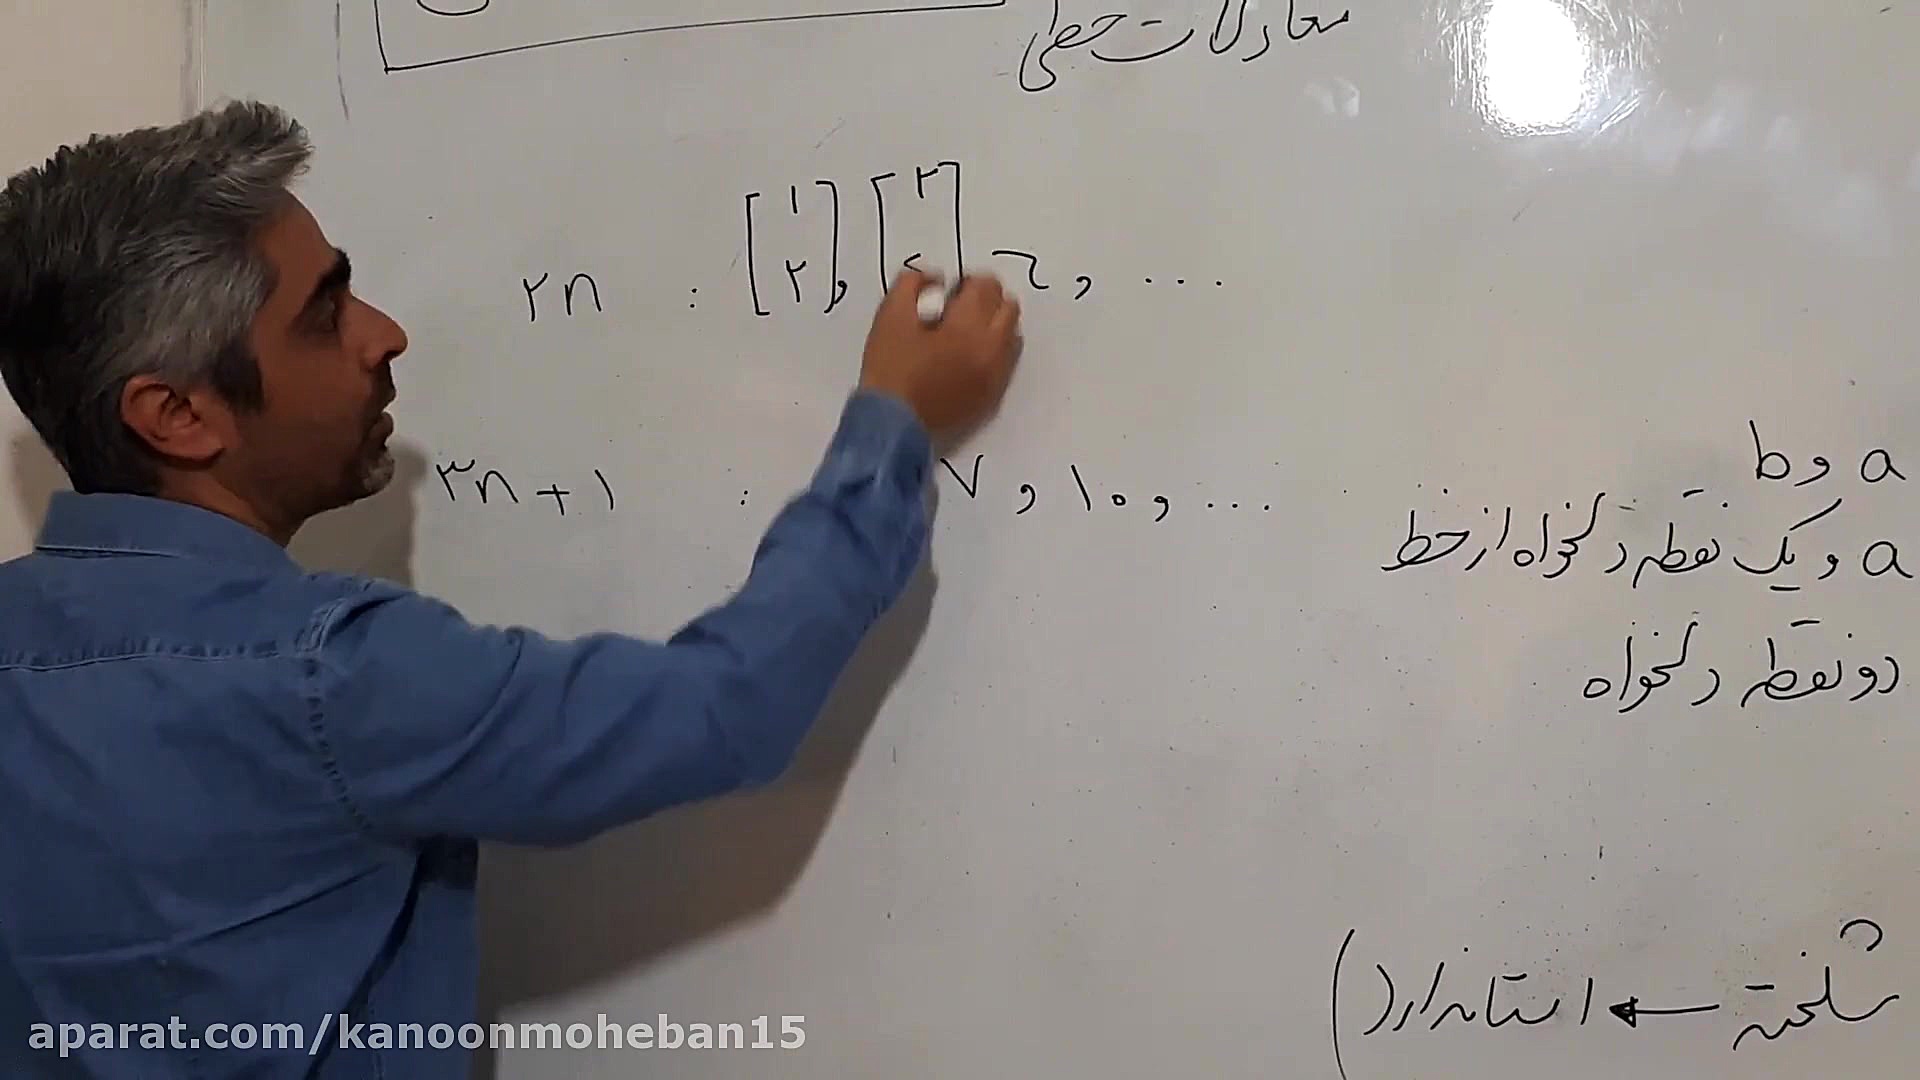 معادلات خطی
۲n : [۱ ۲] , [۲ ] ۶ , ...
۳n + ۱ : ۷ , ۱۰ , ...
a و b
a و یک نقطه دلخواه از خط
دو نقطه دلخواه
شلخته ← استاندارد
aparat.com/kanoonmoheban15